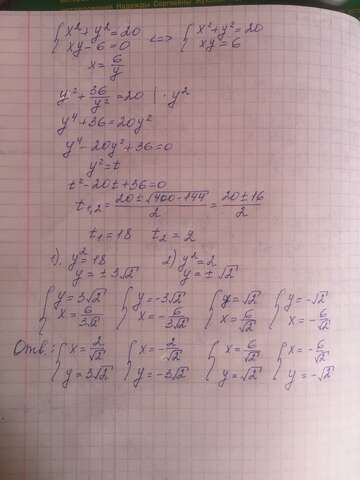 { x² + y² = 20 <=> { x² + y² = 20
xy - 6 = 0 xy = 6
x = 6/y
y² + 36/y² = 20 | · y²
y⁴ + 36 = 20y²
y⁴ - 20y² + 36 = 0
y² = t
t² - 20t + 36 = 0
t₁,₂ = (20 ± √(400 - 144))/2 = (20 ± 16)/2
t₁ = 18 t₂ = 2
1). y² = 18 2) y² = 2
y = ± 3√2 y = ± √2
{ y = 3√2 { y = -3√2 { y = √2 { y = -√2
x = 6/(3√2) x = -6/(3√2) x = 6/√2 x = -6/√2
Отв.: { x = 2/√2 { x = -2/√2 { x = 6/√2 { x = -6/√2
y = 3√2 y = -3√2 y = √2 y = -√2